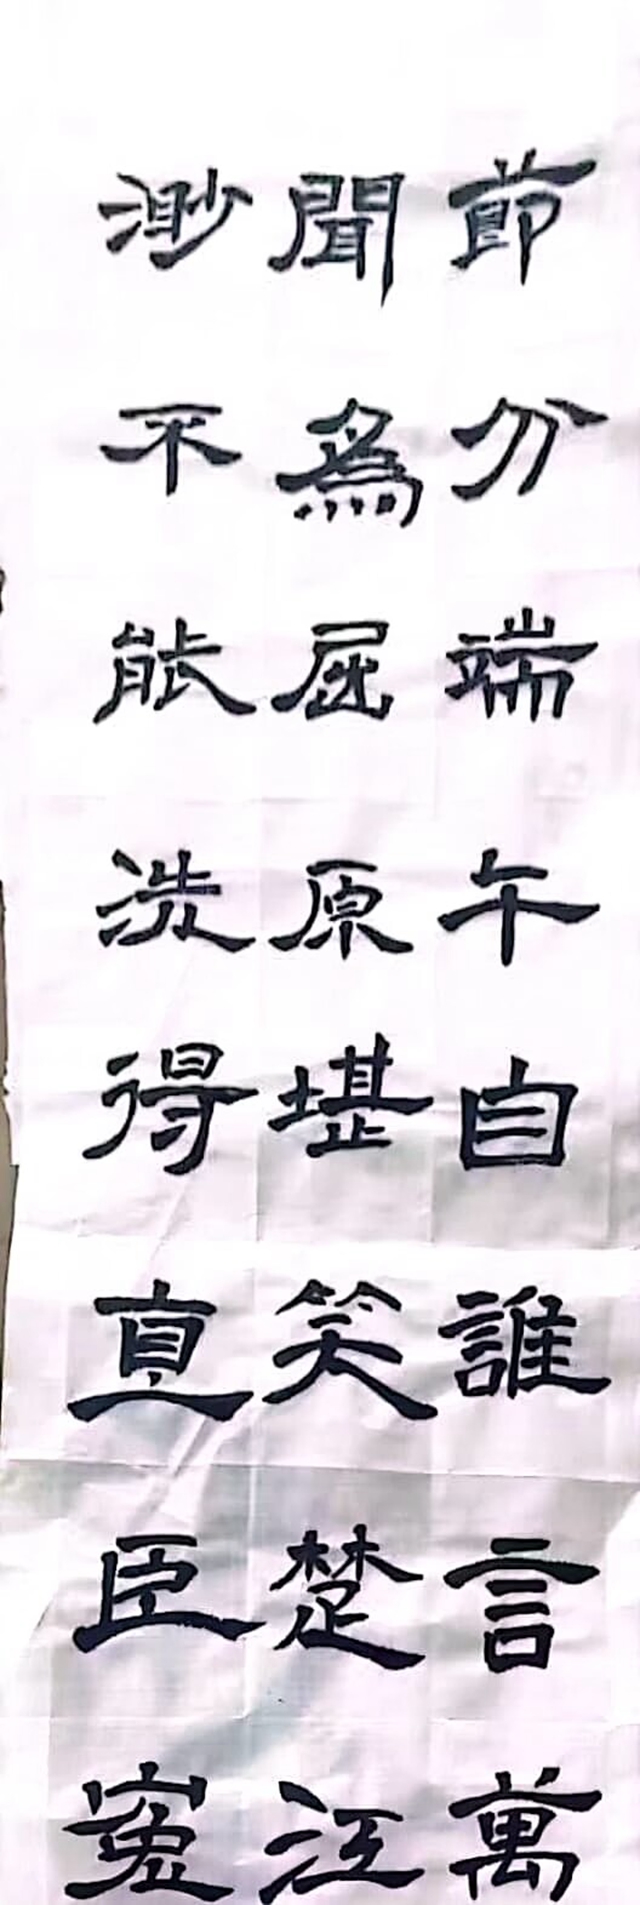 節分端午自誰言萬
聞爲屈原堪笑楚江
渺不能洗得直臣寃